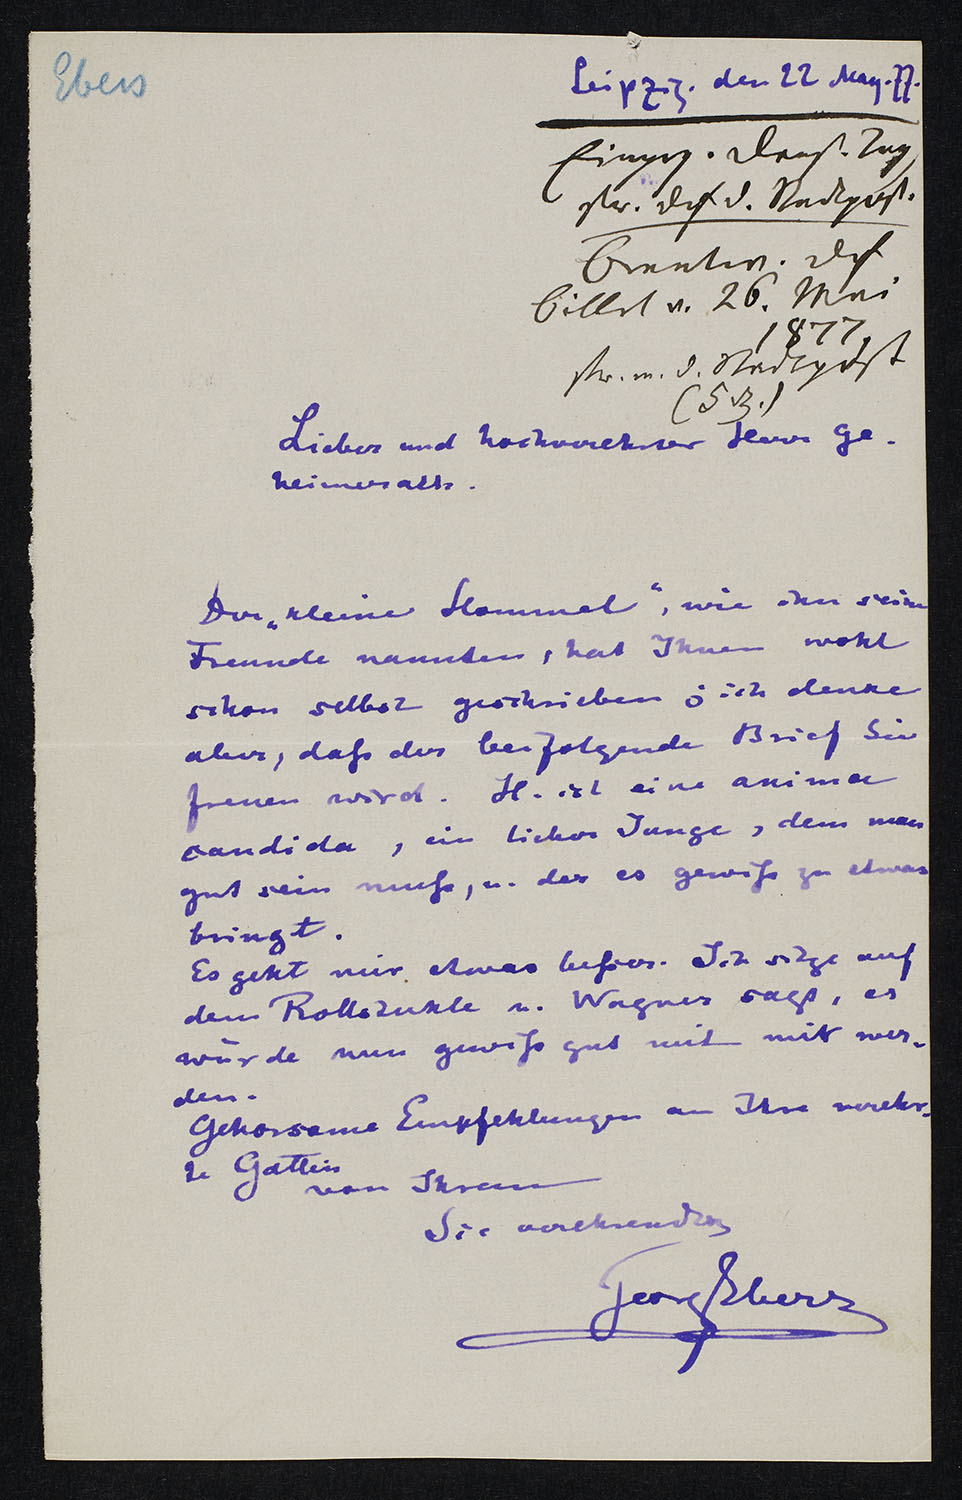 Ebers
Leipzig. den 22 May. 77.
Eingeg. Tag
str. dch d. Stadtpost.
Beantw. dch
Billet v. 26. Mai
1877
str. m. d. Stadtpost
(5 .)
Lieber und hochverehrter Herr Ge-
heimerath.
Der „kleine Hommel“, wie ihn seine
Freunde nannten, hat Ihnen wohl
schon selbst geschrieben; ich denke
aber, daß der beifolgende Brief Sie
freuen wird. H. ist eine anima
candida, ein lieber Junge, dem man
gut sein muß, u. der es gewiß zu etwas
bringt.
Es geht mir etwas beßer. Ich sitze auf
dem Rollstuhle u. Wagner sagt, es
würde nun gewiß gut mit mir wer-
den.
Gehorsame Empfehlungen an Ihre verehr-
te Gattin
von Ihrem
Sie verehrenden
Georg Ebers